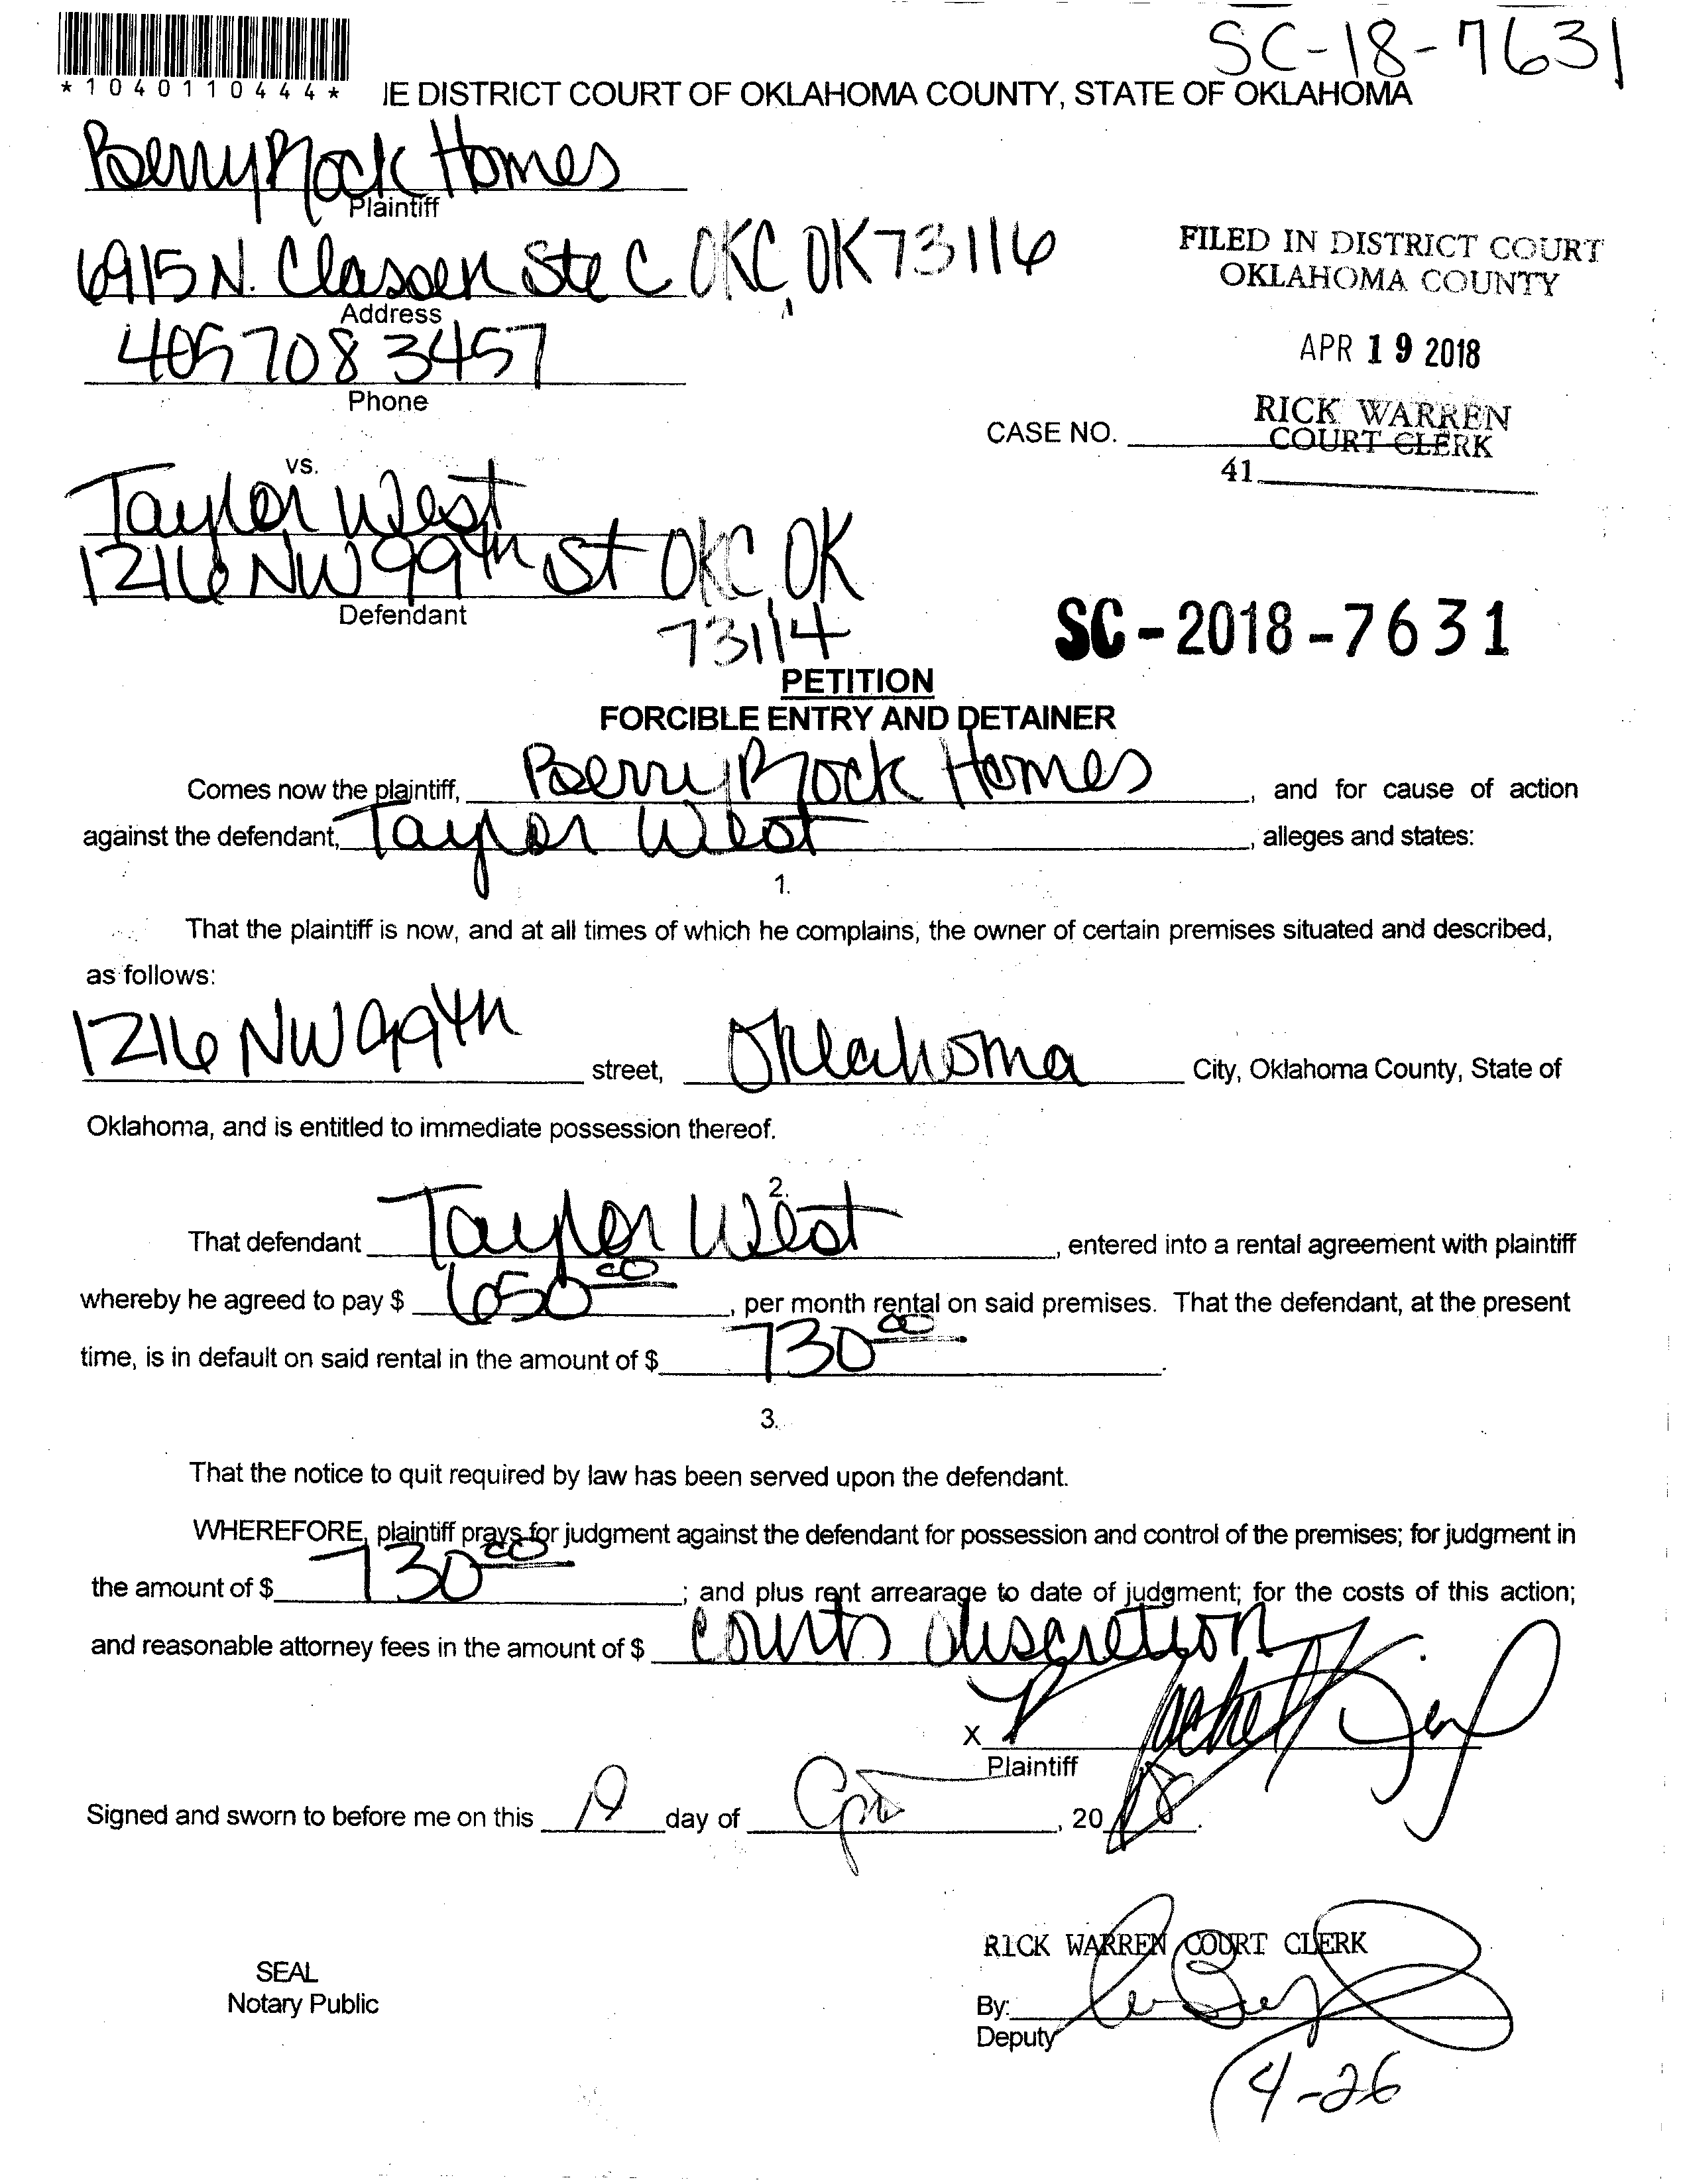 SC-18-7631
*1040110444*
IE DISTRICT COURT OF OKLAHOMA COUNTY, STATE OF OKLAHOMA
BerryRock Homes
Plaintiff
6915 N. Classen Ste C OKC, OK 73116
Address
405 708 3457
Phone
FILED IN DISTRICT COURT
OKLAHOMA COUNTY
APR 19 2018
RICK WARREN
COURT CLERK
CASE NO.
41
vs.
Taylor West
1216 NW 99th St OKC OK
73114
Defendant
SC-2018-7631
PETITION
FORCIBLE ENTRY AND DETAINER
Comes now the plaintiff, BerryRock Homes, and for cause of action
against the defendant, Taylor West, alleges and states:
1.
That the plaintiff is now, and at all times of which he complains, the owner of certain premises situated and described,
as follows:
1216 NW 99th street, Oklahoma City, Oklahoma County, State of
Oklahoma, and is entitled to immediate possession thereof.
2.
That defendant Taylor West, entered into a rental agreement with plaintiff
whereby he agreed to pay $ 650.00, per month rental on said premises. That the defendant, at the present
time, is in default on said rental in the amount of $ 730.00.
3.
That the notice to quit required by law has been served upon the defendant.
WHEREFORE, plaintiff prays for judgment against the defendant for possession and control of the premises; for judgment in
the amount of $ 730.00; and plus rent arrearage to date of judgment; for the costs of this action;
and reasonable attorney fees in the amount of $ courts discretion
X
Plaintiff
Signed and sworn to before me on this 19 day of Apr, 2018.
RICK WARREN COURT CLERK
SEAL
Notary Public
By:
Deputy
4-26